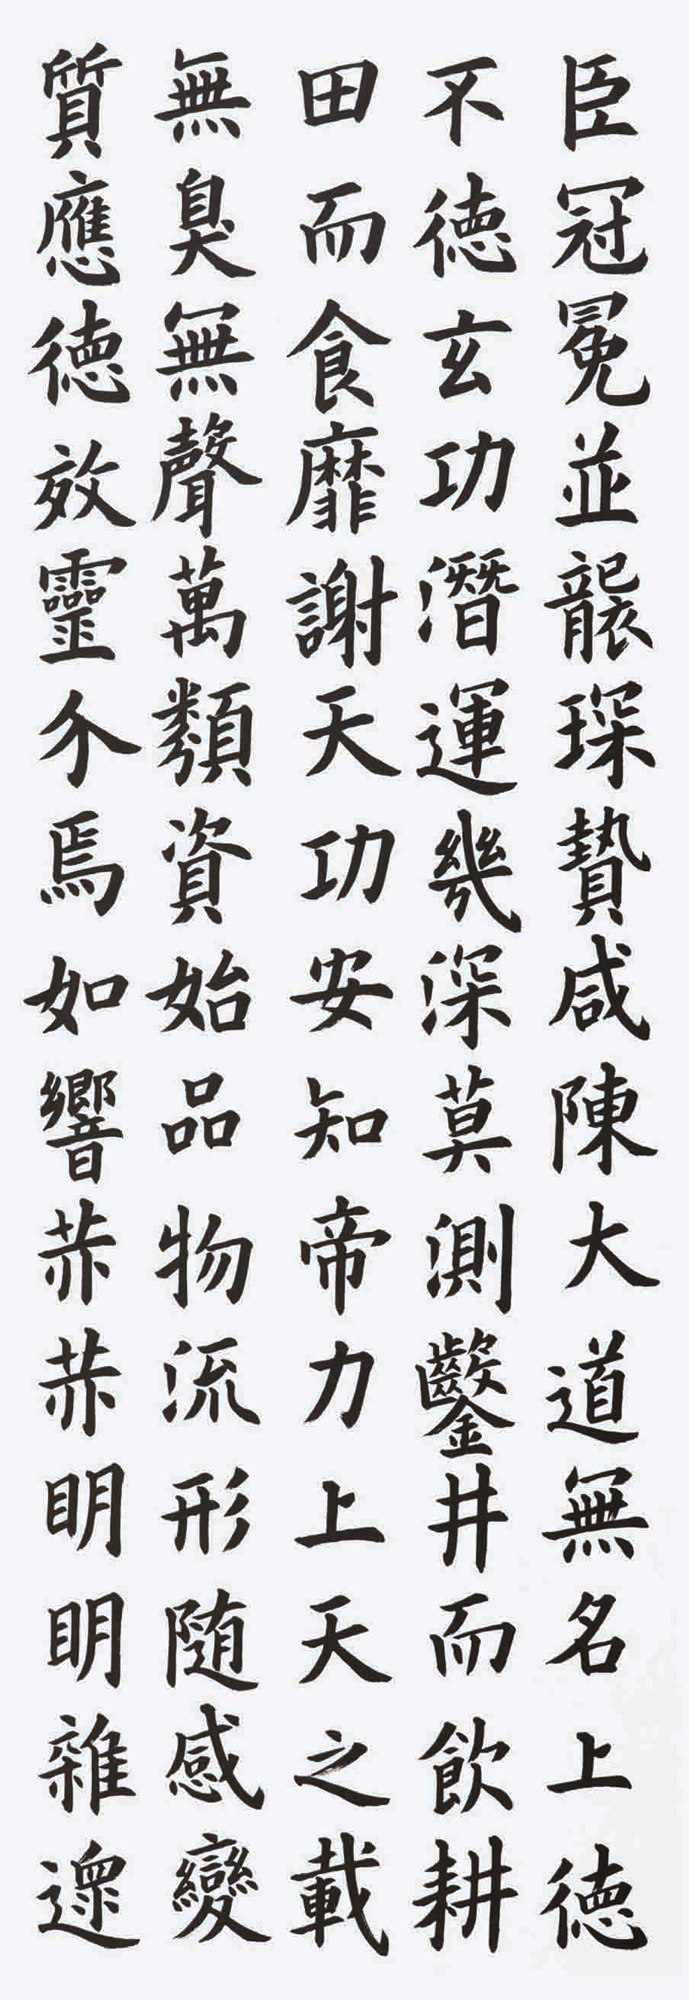 臣冠冕並襲琛贄咸陳大道無名上德
不德玄功潛運幾深莫測鑿井而飲耕
田而食靡謝天功安知帝力上天之載
無臭無聲萬類資始品物流形随感變
質應德效靈介焉如響赫赫明明雜遝